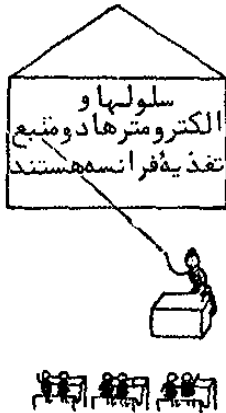 سلولها و
الکترومترها دو منبع
تغذیهٔ فرانسه هستند